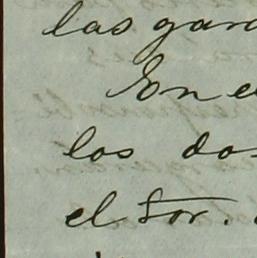 las gan
En e
los dos
el Sor.